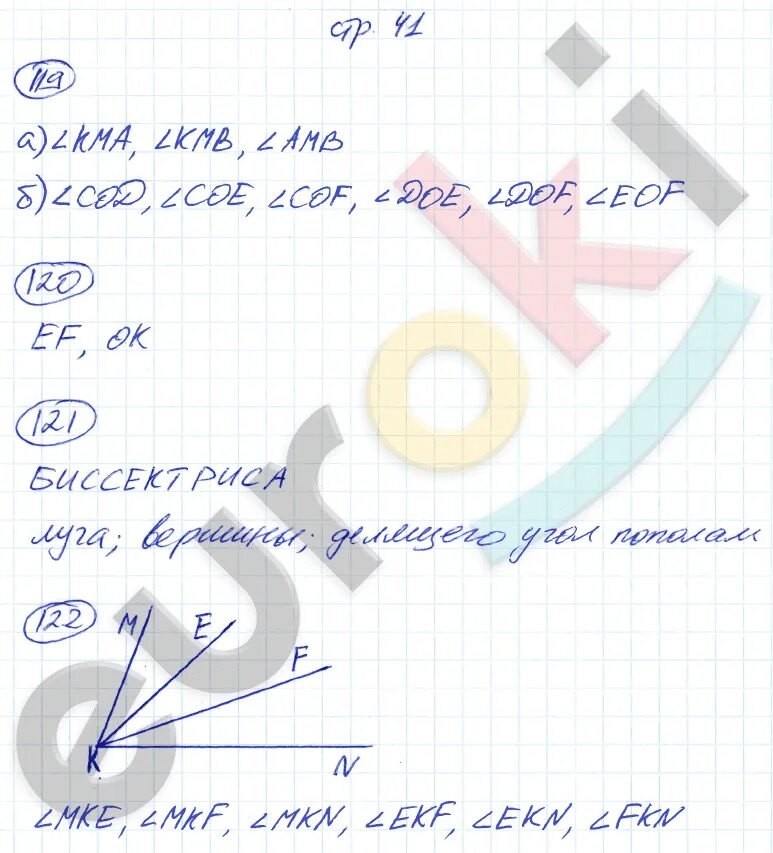 стр. 41
119
а) ∠KMA, ∠KMB, ∠AMB
б) ∠COD, ∠COE, ∠COF, ∠DOE, ∠DOF, ∠EOF
120
EF, OK
121
БИССЕКТРИСА
луга; вершины; делящего угол пополам
122
M E F
K N
∠MKE, ∠MKF, ∠MKN, ∠EKF, ∠EKN, ∠FKN
euroki